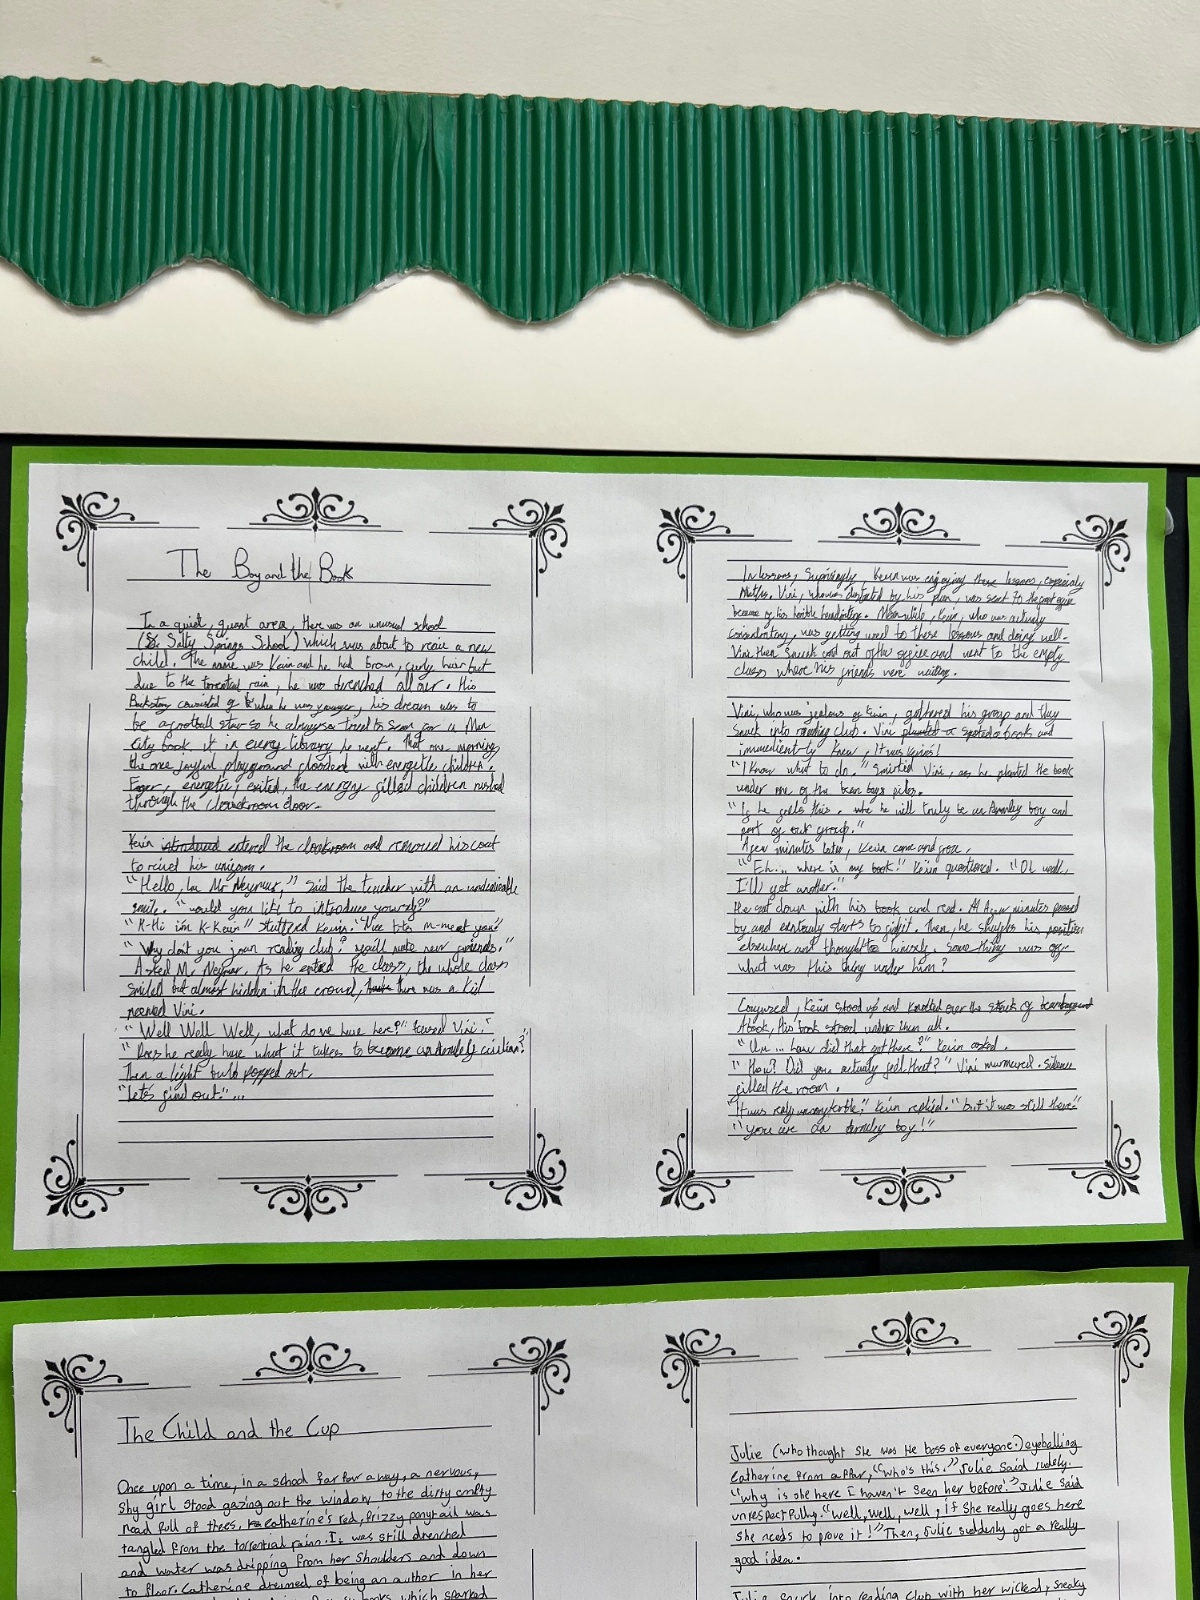 The Boy and the Book
In a quiet, quant area, there was an unusual school
(Salty Springs School) which was about to recive a new
child. The name was Kevin and he had brown, curly hair but
due to the torrential rain, he was drenched all over. His
Backstory consisted of when he was younger, his dream was to
be a football star so he always tried to for a Man
City book, it in every library he went. That one morning,
the one joyful playground flooded with energetic children.
Eager, energetic, exited, the energy filled children rushed
through the cloackroom door.
Kevin introduced entered the cloakroom and removed his coat
to his uniform.
"Hello, Im Mr Neymar," said the teacher with an
smile. "would you like to introduce yourself?"
"H-Hi im K-Kevin" stuttered Kevin. "Nice to m-meet you"
"Why dont you join reading club? you'll make new friends."
Asked Mr Neymar. As he entred the class, the whole class
smiled but almost hidden in the crowd, there was a kid
named Vini.
"Well Well Well, what do we have here?" teased Vini.
"Does he really have what it takes to become an
Then a light bulb popped out.
"Let's find out."...
In lessons, Suprisingly, Kevin was enjoying these lessons, especialy
Maths. Vini, who was by his plan, was sent to the office
because of his horrible handwriting. Meanwhile, Kevin, who was actually
was getting used to these lessons and doing well.
Vini then Snuck out of the office and went to the empty
class where his friends were waiting.
Vini, who was jealous of Kevin, gathered his group and they
Snuck into reading club. Vini spoted a book and
knew, It was Kevins!
"I know what to do." Smirked Vini, as he planted the book
under one of the bean bags piles.
"If he feels this, he will truly be an boy and
part of our group."
A few minutes later, Kevin came and
"Eh... where is my book?" Kevin questioned. "Oh well,
I'll get another."
He sat down with his book and read. A few minutes passed
by and starts to fidget. Then, he his position
elsewhere and thought to himself, something was off
what was this thing under him?
Confused, Kevin stood up and knocked over the stack of
A book, His book stood under them all.
"Um... how did that get there?" Kevin asked.
"How? Did you actualy feel that?" Vini murmured. Silence
filled the room.
"It was realy Kevin replied. "but it was still there"
"you are an boy!"
The Child and the Cup
Once upon a time, in a school far far away, a nervous,
Shy girl stood gazing out the window to the dirty empty
road full of trees. Catherine's red, frizzy ponytail was
tangled from the torrential rain. It was still drenched
and water was dripping from her shoulders and down
to floor. Catherine dreamed of being an author in her
books which sparked
Julie (who thought she was the boss of everyone.) eyeballing
Catherine from affar, "who's this." Julie said rudely.
"why is she here I haven't seen her before." Julie said
unrespectfully. "well, well, well, if she really goes here
she needs to prove it!" Then, Julie suddenly got a really
good idea.
Julie snuck into reading club with her wicked, sneaky